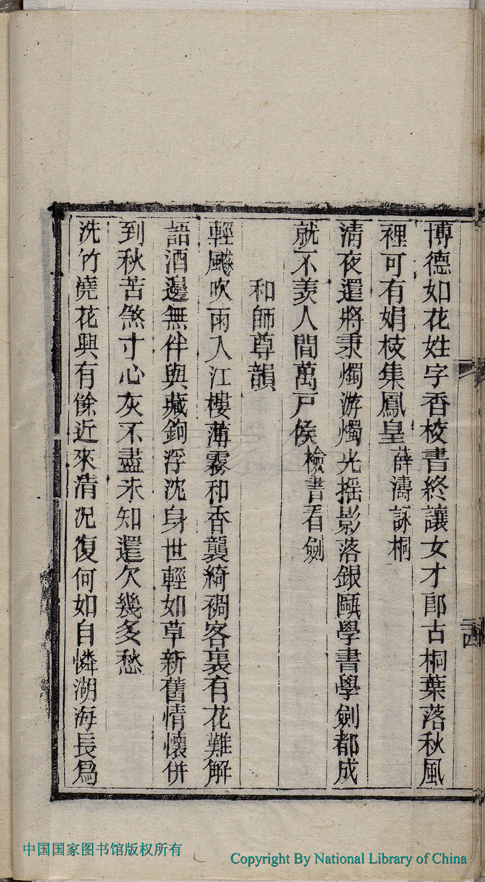 博德如花姓字香校書終讓女才郎古桐葉落秋風
裡可有娟枝集鳳皇 薛濤詠桐
清夜還將秉燭游燭光摇影落銀甌學書學劍都成
就不羨人間萬戸侯 檢書看劍
和師尊韻
輕颸吹雨入江樓薄霧和香襲綺裯客裏有花難解
語酒邊無伴與藏鉤浮沈身世輕如草新舊情懷併
到秋苦煞寸心灰不盡未知還欠幾多愁
洗竹澆花興有餘近來清況復何如自憐湖海長爲
中国国家图书馆版权所有
Copyright By National Library of China